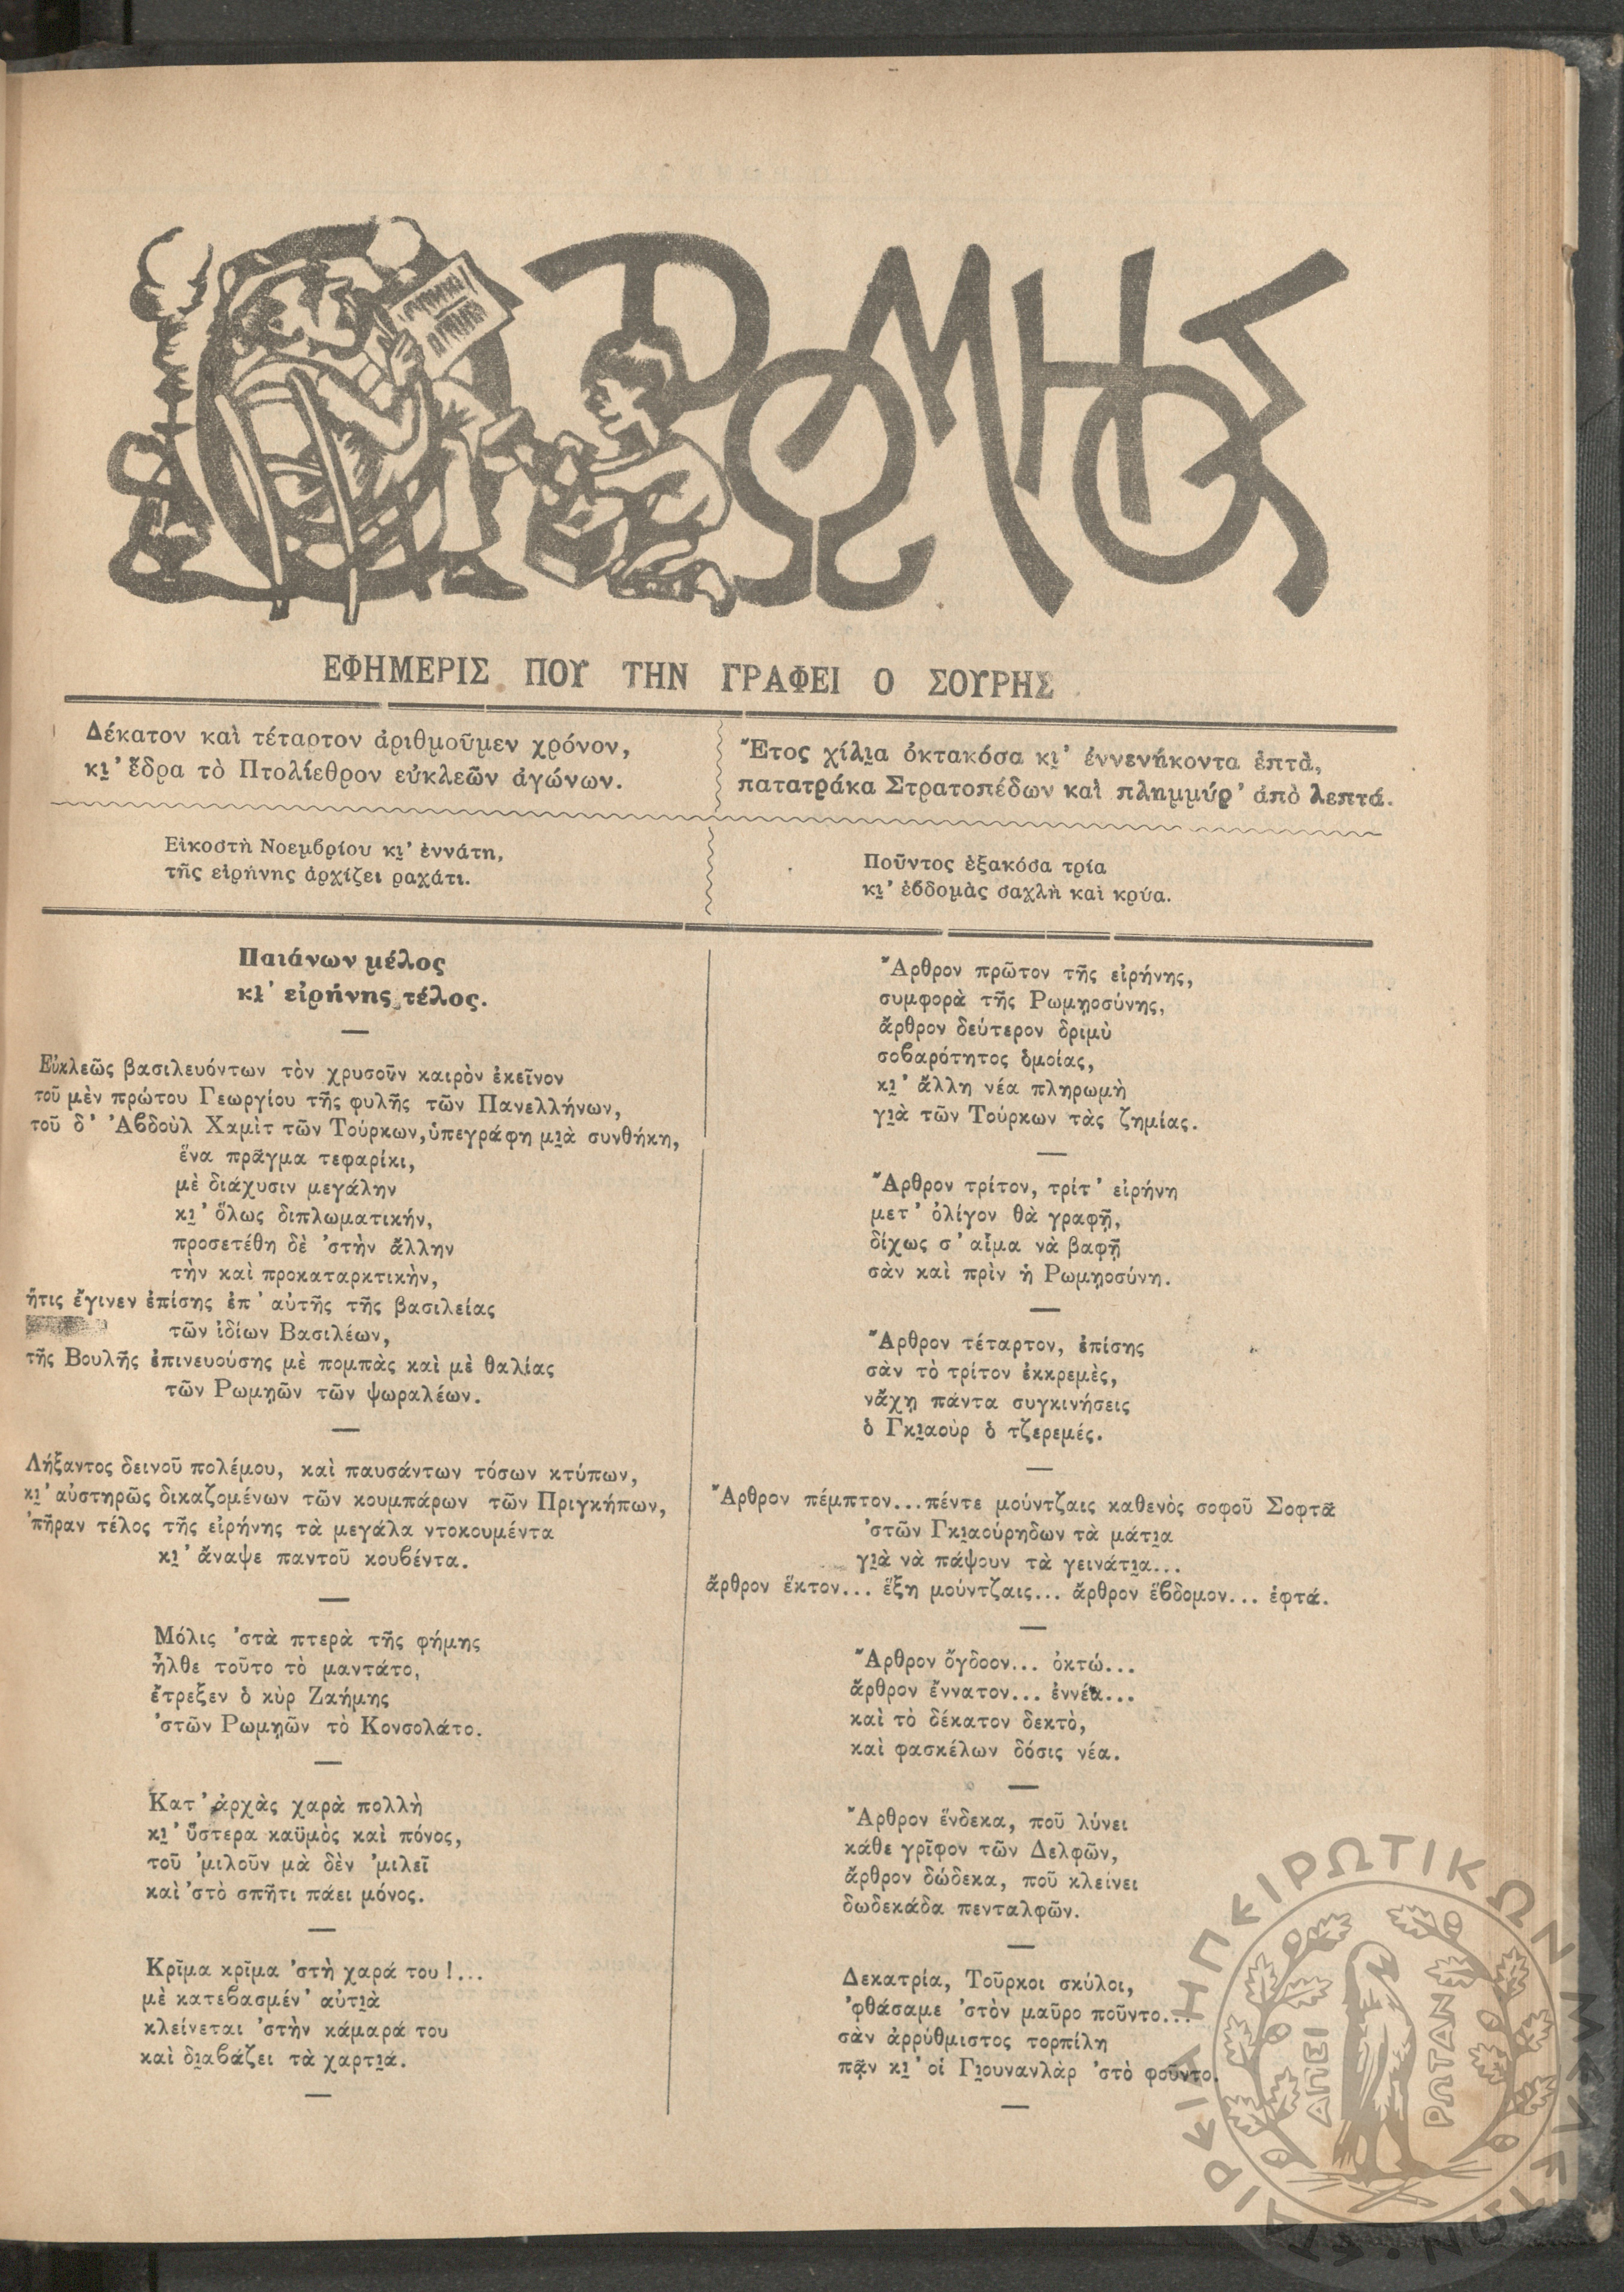 Ο ΡΩΜΗΟΣ
ΕΦΗΜΕΡΙΣ ΠΟΥ ΤΗΝ ΓΡΑΦΕΙ Ο ΣΟΥΡΗΣ
Δέκατον καὶ τέταρτον ἀριθμοῦμεν χρόνον,
κι̯’ ἕδρα τὸ Πτολίεθρον εὐκλεῶν ἀγώνων.
Ἔτος χίλι̯α ὀκτακόσα κι̯’ ἐννενήκοντα ἑπτὰ,
πατατράκα Στρατοπέδων καὶ πλημμύρ’ ἀπὸ λεπτά.
Εἰκοστὴ Νοεμβρίου κι̯’ ἐννάτη,
τῆς εἰρήνης ἀρχίζει ραχάτι.
Ποῦντος ἑξακόσα τρία
κι̯’ ἑβδομὰς σαχλὴ καὶ κρύα.
Παιάνων μέλος
κι̯’ εἰρήνης τέλος.
Εὐκλεῶς βασιλευόντων τὸν χρυσοῦν καιρὸν ἐκεῖνον
τοῦ μὲν πρώτου Γεωργίου τῆς φυλῆς τῶν Πανελλήνων,
τοῦ δ’ Ἀβδοὺλ Χαμὶτ τῶν Τούρκων, ὑπεγράφη μι̯ὰ συνθήκη,
ἕνα πρᾶγμα τεφαρίκι,
μὲ διάχυσιν μεγάλην
κι̯’ ὅλως διπλωματικήν,
προσετέθη δὲ ’στὴν ἄλλην
τὴν καὶ προκαταρκτικὴν,
ἥτις ἔγινεν ἐπίσης ἐπ’ αὐτῆς τῆς βασιλείας
τῶν ἰδίων Βασιλέων,
τῆς Βουλῆς ἐπινευούσης μὲ πομπὰς καὶ μὲ θαλίας
τῶν Ρωμῃῶν τῶν ψωραλέων.
Λήξαντος δεινοῦ πολέμου, καὶ παυσάντων τόσων κτύπων,
κι̯’ αὐστηρῶς δικαζομένων τῶν κουμπάρων τῶν Πριγκήπων,
’πῆραν τέλος τῆς εἰρήνης τὰ μεγάλα ντοκουμέντα
κι̯’ ἄναψε παντοῦ κουβέντα.
Μόλις ’στὰ πτερὰ τῆς φήμης
ἦλθε τοῦτο τὸ μαντάτο,
ἔτρεξεν ὁ κὺρ Ζαήμης
’στῶν Ρωμῃῶν τὸ Κονσολάτο.
Κατ’ ἀρχὰς χαρὰ πολλὴ
κι̯’ ὕστερα καϋμὸς καὶ πόνος,
τοῦ ’μιλοῦν μὰ δὲν ’μιλεῖ
καὶ ’στὸ σπῆτι πάει μόνος.
Κρῖμα κρῖμα ’στὴ χαρά του!...
μὲ κατεβασμέν’ αὐτι̯ὰ
κλείνεται ’στὴν κάμαρά του
καὶ δι̯αβάζει τὰ χαρτι̯ά.
Ἄρθρον πρῶτον τῆς εἰρήνης,
συμφορὰ τῆς Ρωμῃοσύνης,
ἄρθρον δεύτερον δριμὺ
σοβαρότητος ὁμοίας,
κι̯’ ἄλλη νέα πληρωμὴ
γι̯ὰ τῶν Τούρκων τὰς ζημίας.
Ἄρθρον τρίτον, τρίτ’ εἰρήνη
μετ’ ὀλίγον θὰ γραφῇ,
δίχως σ’ αἷμα νὰ βαφῇ
σὰν καὶ πρὶν ἡ Ρωμῃοσύνη.
Ἄρθρον τέταρτον, ἐπίσης
σὰν τὸ τρίτον ἐκκρεμὲς,
νἄχῃ πάντα συγκινήσεις
ὁ Γκι̯αοὺρ ὁ τζερεμές.
Ἄρθρον πέμπτον... πέντε μούντζαις καθενὸς σοφοῦ Σοφτᾶ
’στῶν Γκι̯αούρηδων τὰ μάτι̯α
γι̯ὰ νὰ πάψουν τὰ γεινάτι̯α...
ἄρθρον ἕκτον... ἕξη μούντζαις... ἄρθρον ἕβδομον... ἑφτά.
Ἄρθρον ὄγδοον... ὀκτώ...
ἄρθρον ἔννατον... ἐννέα...
καὶ τὸ δέκατον δεκτὸ,
καὶ φασκέλων δόσις νέα.
Ἄρθρον ἕνδεκα, ποῦ λύνει
κάθε γρῖφον τῶν Δελφῶν,
ἄρθρον δώδεκα, ποῦ κλείνει
δωδεκάδα πενταλφῶν.
Δεκατρία, Τοῦρκοι σκύλοι,
’φθάσαμε ’στὸν μαῦρο ποῦντο...
σὰν ἀρρύθμιστος τορπίλη
πᾷν κι̯’ οἱ Γι̯ουνανλὰρ ’στὸ φοῦντο.
ΕΤΑΙΡΕΙΑ ΗΠΕΙΡΩΤΙΚΩΝ ΜΕΛΕΤΩΝ
ΑΠΕΙ
ΡΩΤΑΝ